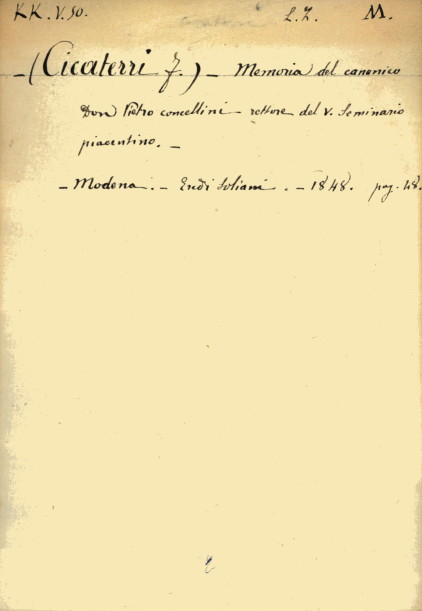 KK.V.50. L.Z. M.
-(Cicaterri F.) - Memoria del canonico
Don Pietro Concellini - rettore del V. Seminario
piacentino. -
- Modena. - Eredi Soliani. - 1848. pag. 48.